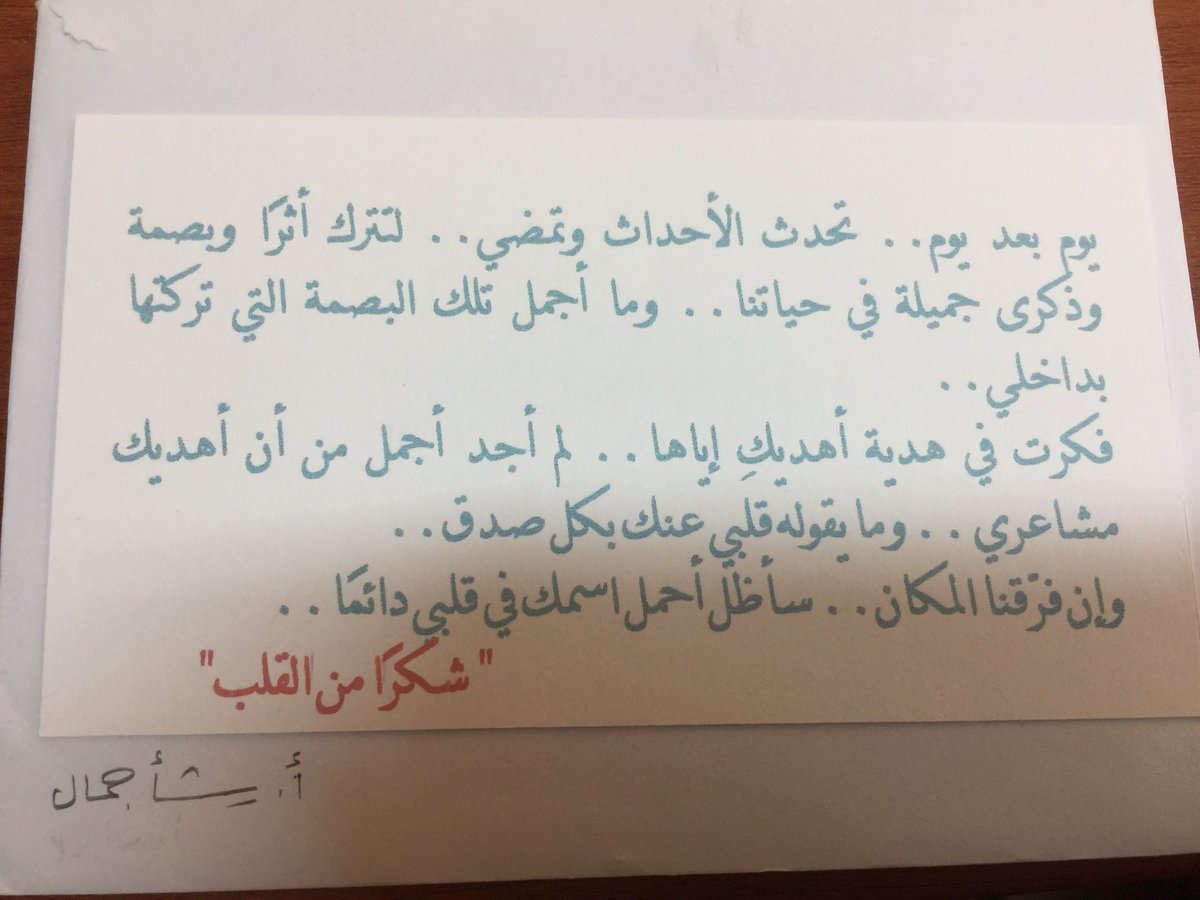 يوم بعد يوم.. تحدث الأحداث وتمضي.. لتترك أثرًا وبصمة
وذكرى جميلة في حياتنا.. وما أجمل تلك البصمة التي تركتها
بداخلي..
فكرت في هدية أهديكِ إياها.. لم أجد أجمل من أن أهديك
مشاعري.. وما يقوله قلبي عنك بكل صدق..
وإن فرّقنا المكان.. سأظلّ أحمل اسمك في قلبي دائمًا..
"شكرًا من القلب"
أ. جمال